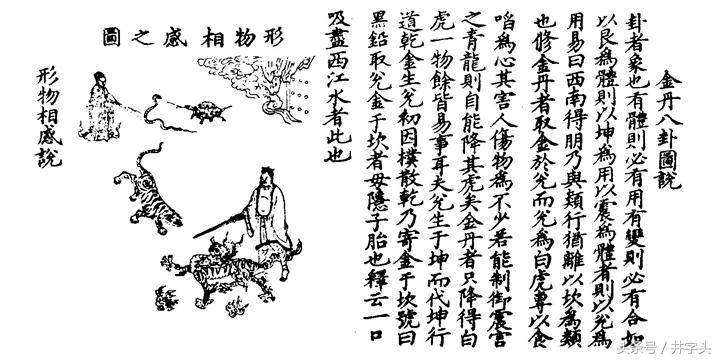 金丹八卦圖說
卦者象也有體則必有用有變則必有合如
以艮為體則以坤為用以震為體者則以兌為
用易曰西南得朋乃與類行猶離以坎為類
也修金丹者取金於兌而兌為白虎專以食
啗為心其害人傷物為不少若能制御震宮
之青龍則自能降其虎矣金丹者只降得白
虎一物餘皆易事耳夫兌生于坤而代坤行
道乾金生兌初因樸散乾乃寄金于坎號曰
黑鉛取兌金于坎者母隱子胎也釋云一口
吸盡西江水者此也
形物相感之圖
形物相感說
头条号 / 井字头